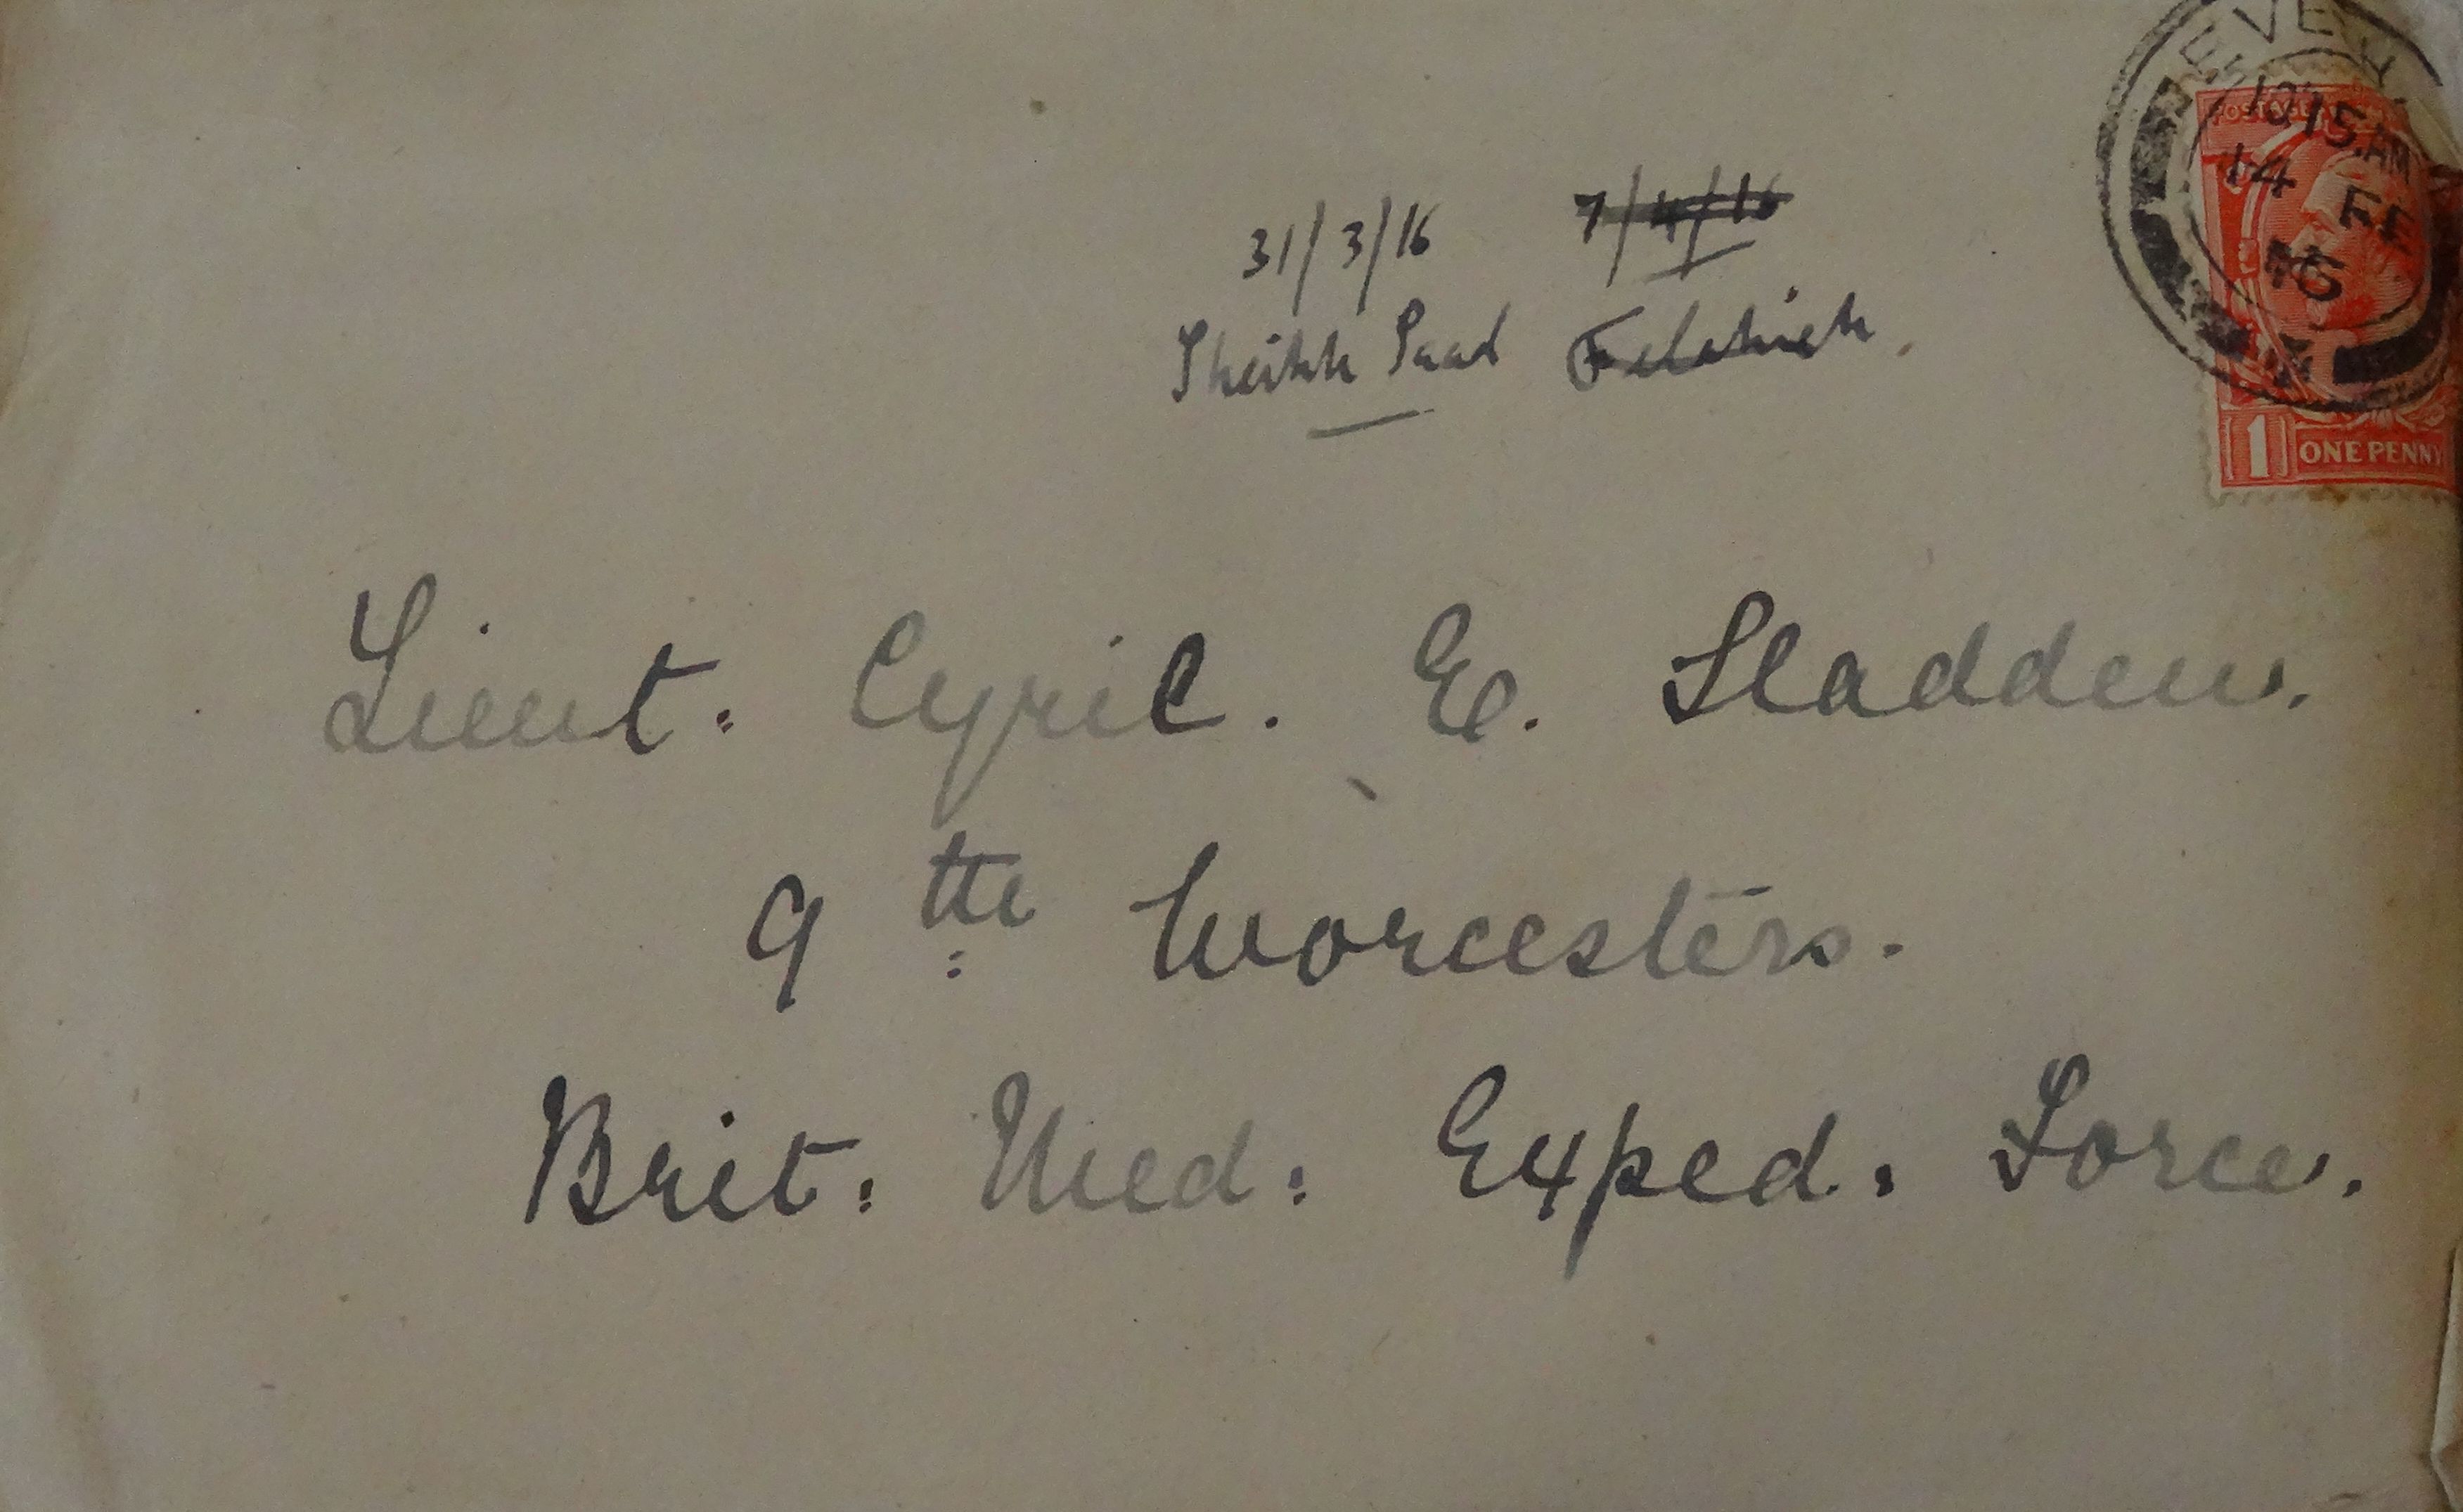 EVESH
10 15 AM
14 FE
16
POSTAGE
1 ONE PENNY
31/3/16 7/4/16
Sheikh Saad Felahieh.
Lieut. Cyril. E. Sladden.
9th Worcesters.
Brit: Med: Exped: Force.